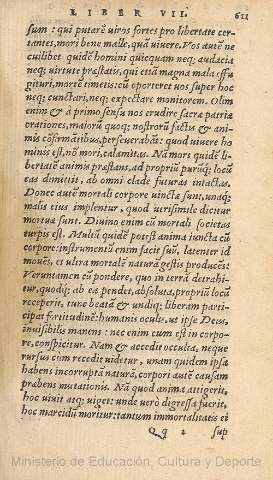 LIBER VII. 611
sum: qui putarē viros fortes pro libertate cer-
tantes, mori bene malle, quā viuere. Vos autē ne
cuilibet quidē homini quicquam neq; audacia
neq; virtute præstatis, qui etsi magna mala effu-
gituri, morīē timetis: cū oporteret vos super hoc
neq; cunctari, neq; expectare monitorem. Olim
enim & a primo sensu nos erudire sacra patriæ
orationes, maiorū quoq; nostrorū factis & ani-
mis cōfirmātibus, perseuerabāt: quod viuere ho
minis est, nō mori, calamitas. Nā mors quidē li-
bertatē animis præstans, ad propriū purūq; locū
eas dimittit, ab omni clade futuras intactas.
Donec autē mortali corpore vinctæ sunt, unaq;
malis eius implentur, quod verisimile dicitur
mortuæ sunt. Diuino enim cū mortali societas
turpis est. Multū quidē potest anima iuncta cū
corpore: instrumentū enim facit suū, latenter id
mouēs, et ultra mortalē naturā gestis producēs:
Veruntamen cū pondere, quo in terrā detrahi-
tur, quodq; ab ea pendet, absoluta, propriū locū
receperit, tunc beatā & undiq; liberam parti-
cipat fortitudinē: humanis oculis, ut ipse Deus,
inuisibilis manens: nec enim cum est in corpo-
re, conspicitur. Nam & accedit occulta, neque
rursus cum recedit videtur, unam quidem ipsa
habens incorruptā naturā, corpori autē causam
præbens mutationis. Nā quod anima attigerit,
hoc viuit atq; viget: unde verò digressa fuerit,
hoc marcidū moritur: tantum immortalitatis ei
Qq 2 sup
Ministerio de Educación, Cultura y Deporte